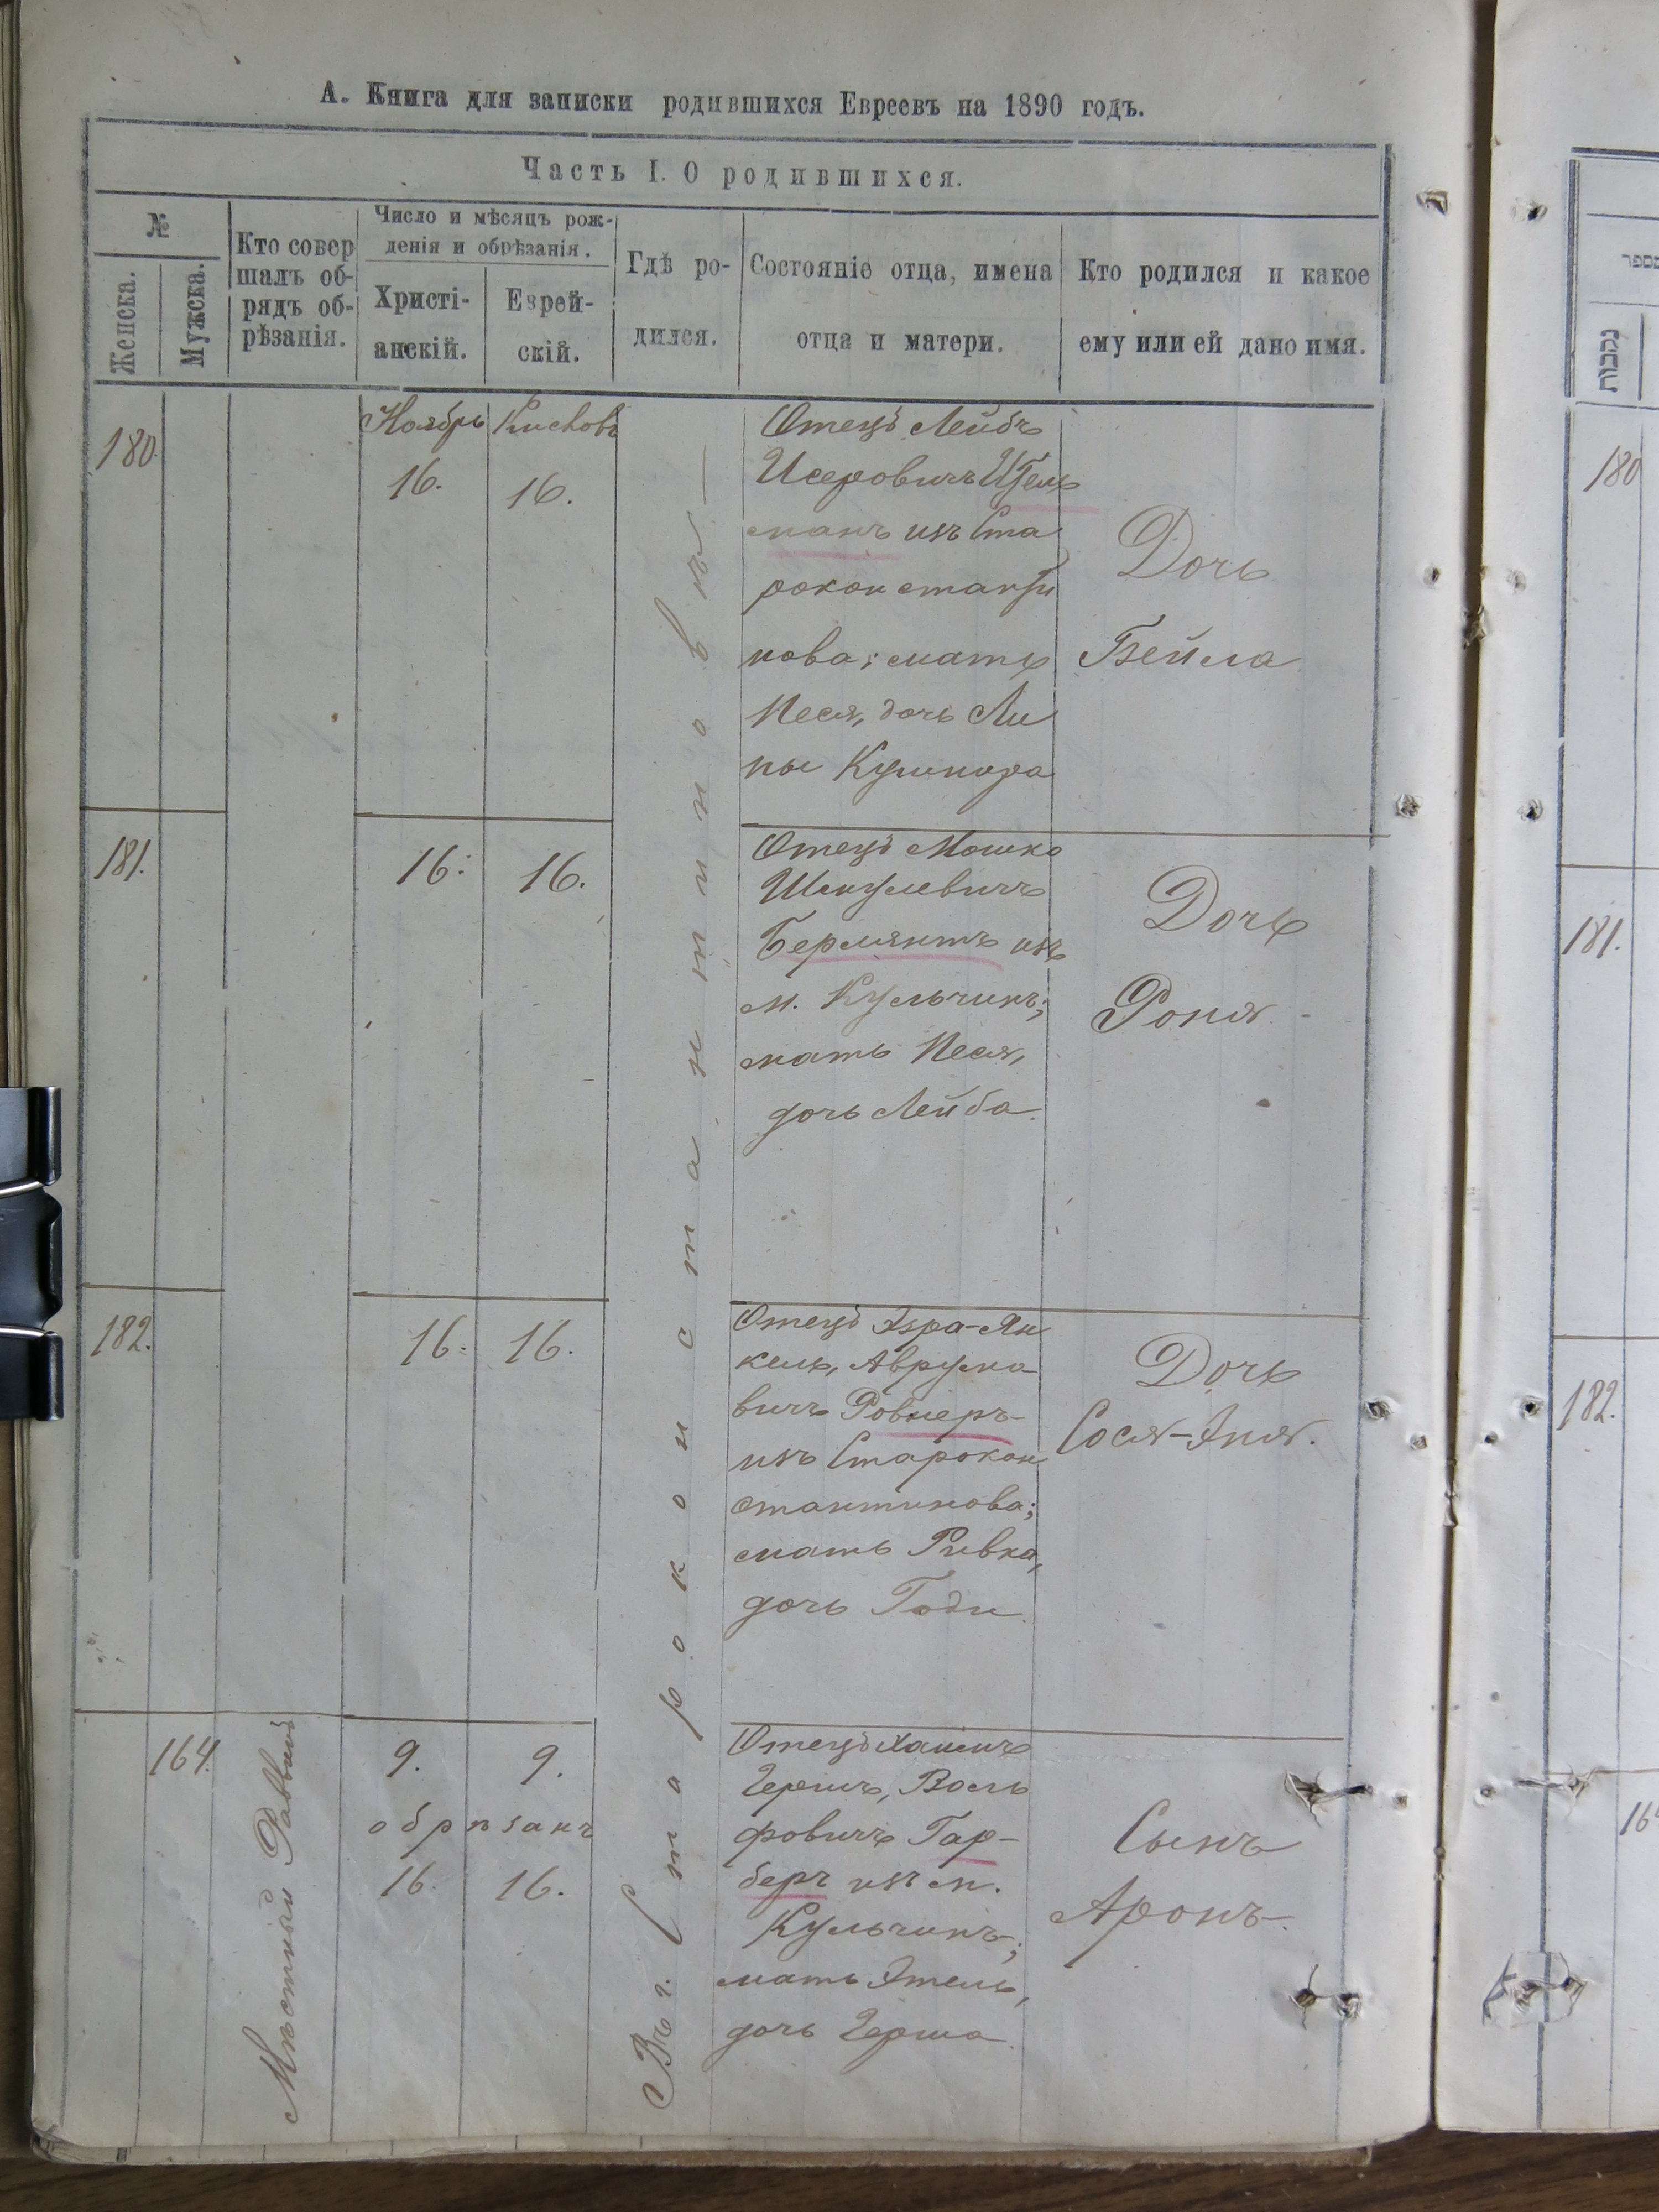 А. Книга для записки родившихся Евреевъ на 1890 годъ.
Часть I. О родившихся.
№
Женска.
Мужска.
Кто совер
шалъ об-
рядъ об-
рѣзанія.
Число и мѣсяцъ рож-
денія и обрѣзанія.
Христі-
анскій.
Еврей-
скій.
Гдѣ ро-
дился.
Состояніе отца, имена
отца и матери.
Кто родился и какое
ему или ей дано имя.
Въ г. Староконстантиновѣ
180.
Ноябрь
16.
Кислевъ
16.
Отецъ Лейбъ
Исеровичъ
манъ изъ Ста
роконстанти
нова; мать
Песя, дочь Ли
пы Кушнира
Дочь
Бейла
181.
16.
16.
Отецъ Мошко
Шмулевичъ
Бермантъ изъ
м. Кульчинъ;
мать Песя,
дочь Лейба.
Дочь
Роня.
182.
16.
16.
Отецъ Эзра-Ян
кель, Аврумо
вичъ Ровнеръ
изъ Старокон
стантинова;
мать Ривка,
дочь Годи
Дочь
Сося-Эня.
164.
Мѣстный Раввинъ
9.
9.
обрѣзанъ
16.
16.
Отецъ Хаимъ
Гершъ, Воль
фовичъ Гар-
беръ изъ м.
Кульчинъ;
мать Этель,
дочь Герша.
Сынъ
Аронъ.
מספר
נקבות
180
181.
182.
16